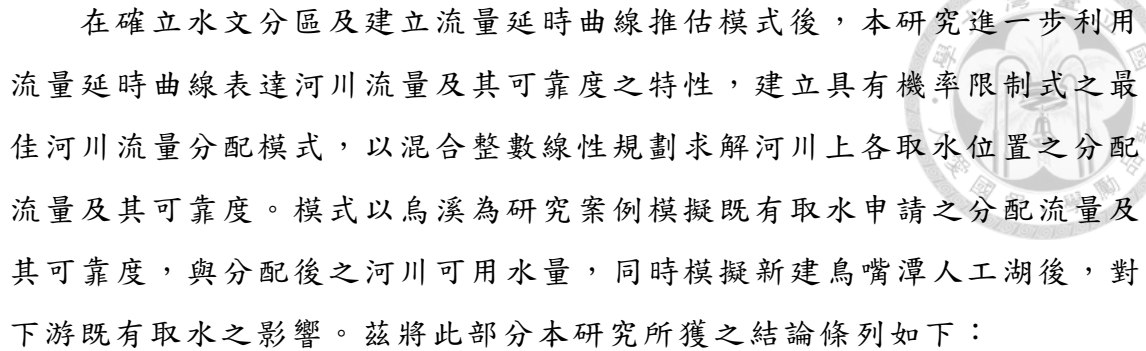 在確立水文分區及建立流量延時曲線推估模式後，本研究進一步利用
流量延時曲線表達河川流量及其可靠度之特性，建立具有機率限制式之最
佳河川流量分配模式，以混合整數線性規劃求解河川上各取水位置之分配
流量及其可靠度。模式以烏溪為研究案例模擬既有取水申請之分配流量及
其可靠度，與分配後之河川可用水量，同時模擬新建鳥嘴潭人工湖後，對
下游既有取水之影響。茲將此部分本研究所獲之結論條列如下：